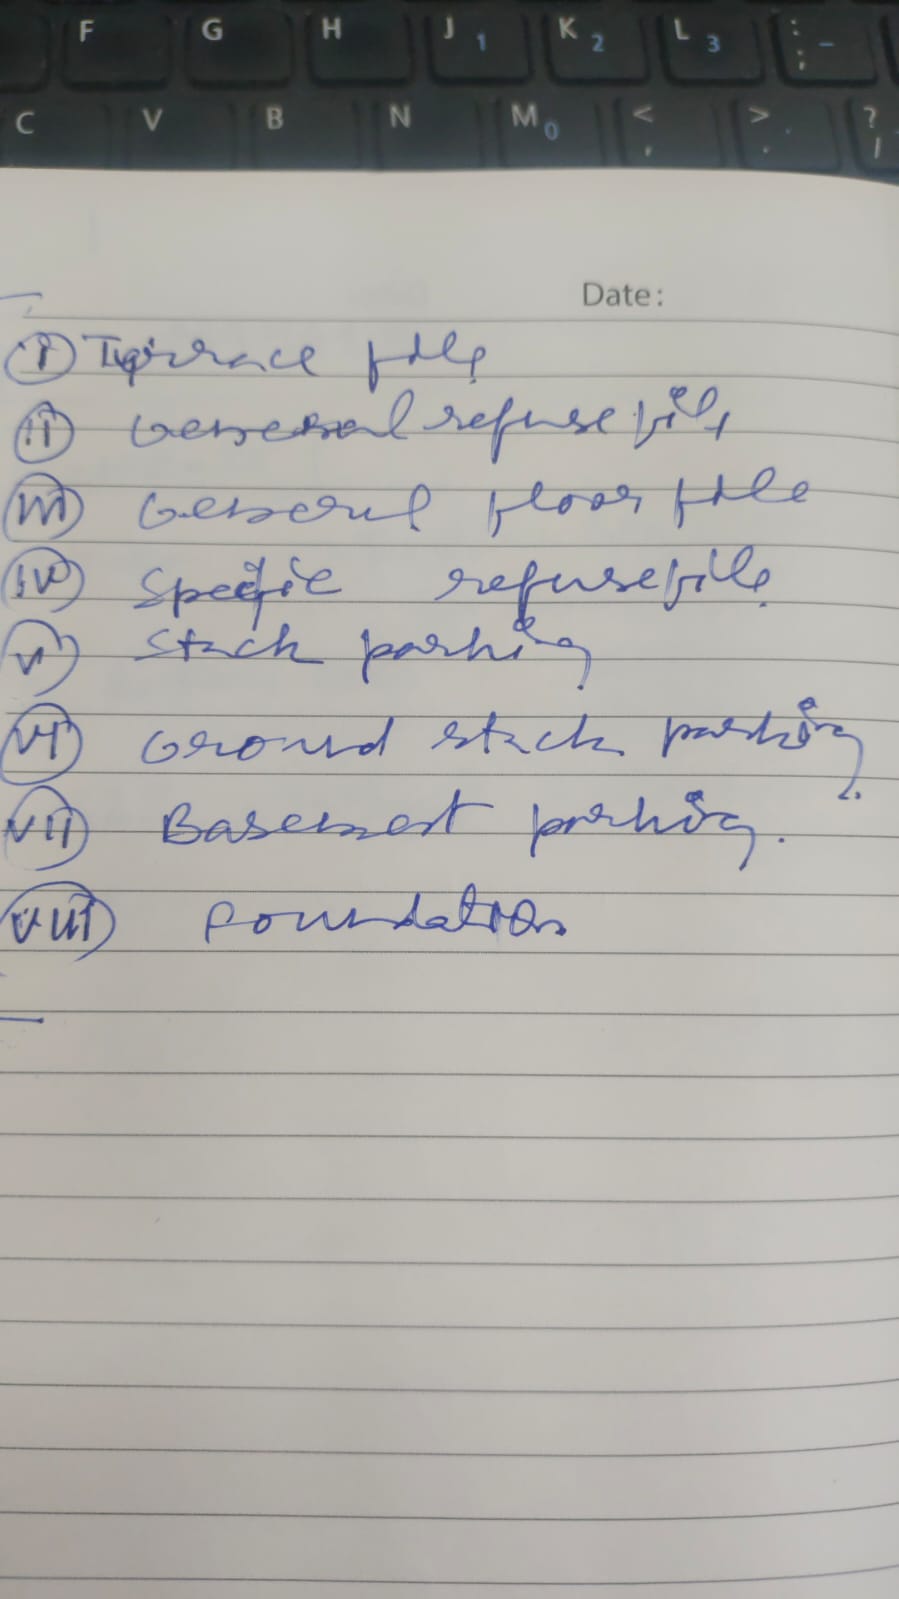 F G H J 1 K 2 L 3 : ; -
C V B N M 0 < , > . ? /
Date:
(i) Terrace file
(ii) General refuse file
(iii) General floor file
(iv) Specific refuse file
(v) Stack parking
(vi) Ground stack parking
(vii) Basement parking.
(viii) Foundation